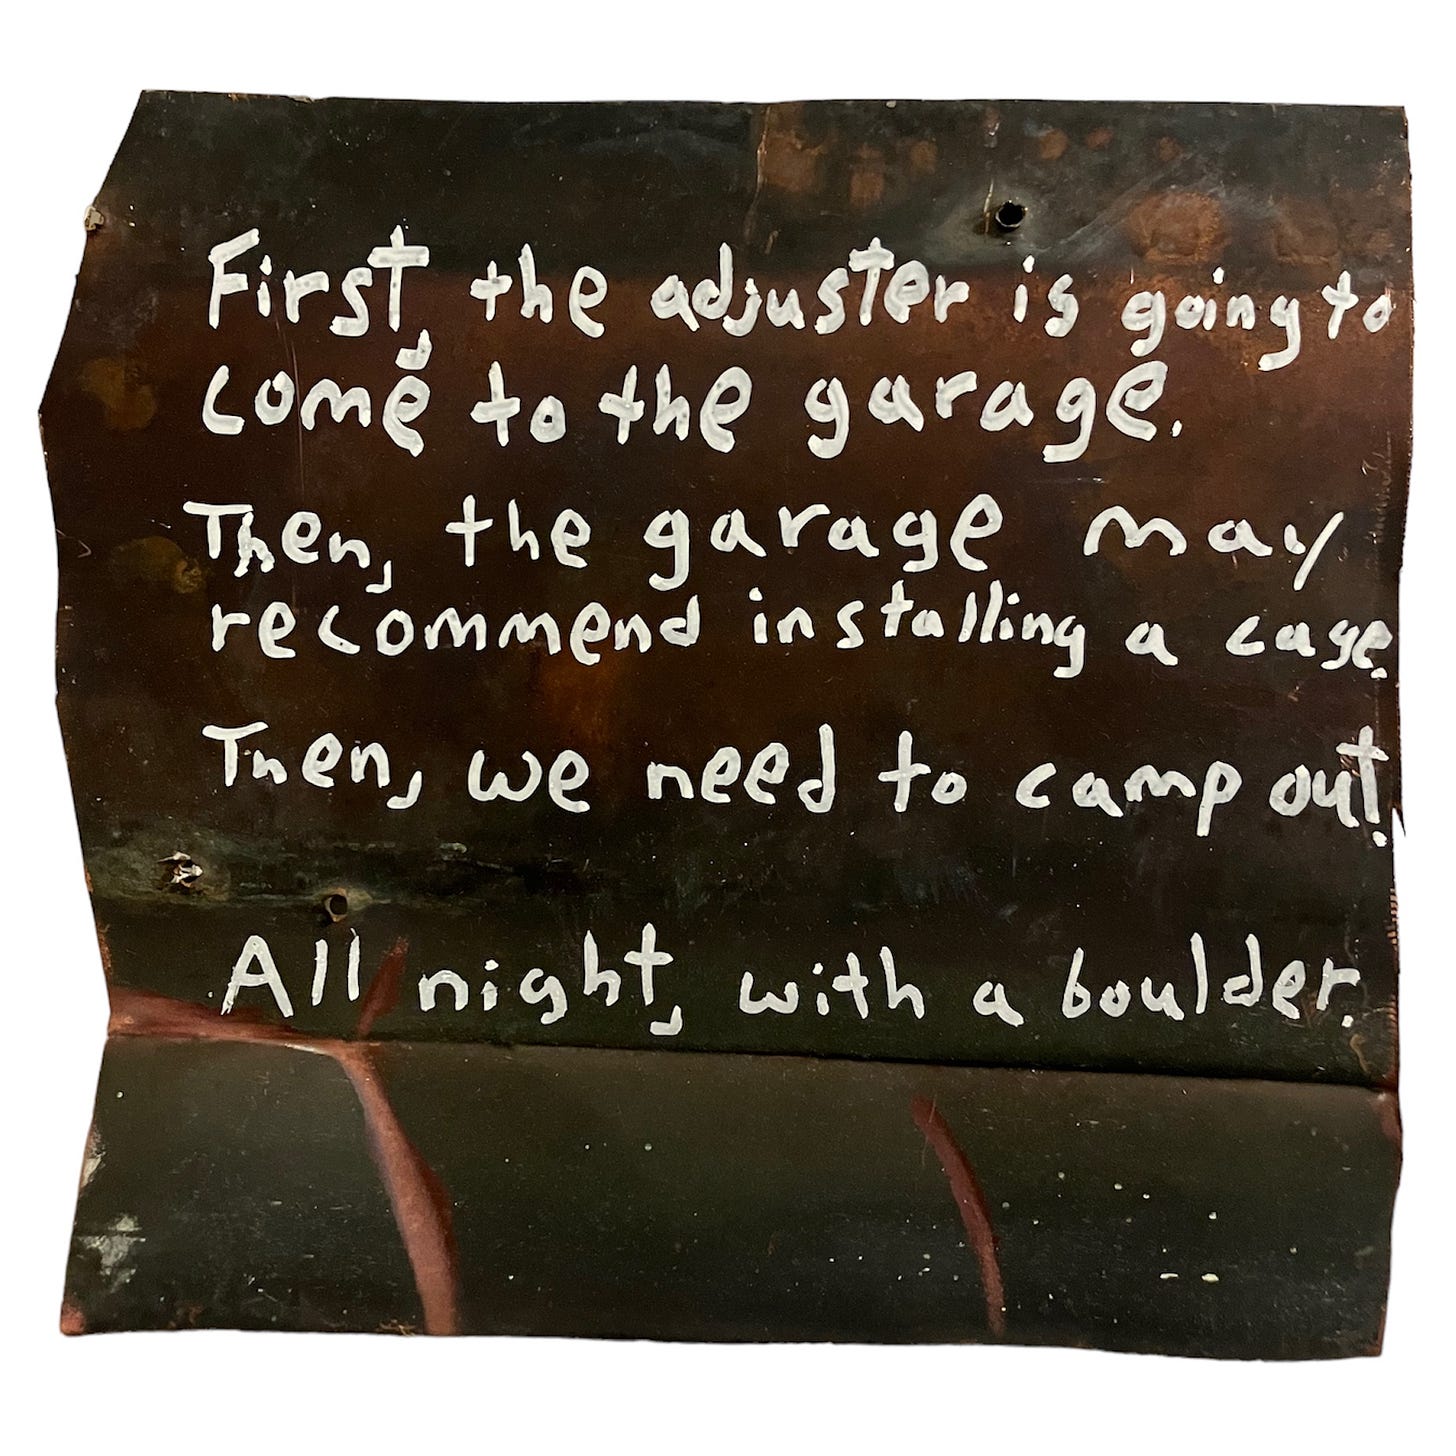 First, the adjuster is going to
come to the garage.
Then, the garage may
recommend installing a cage.
Then, we need to camp out.
All night, with a boulder.